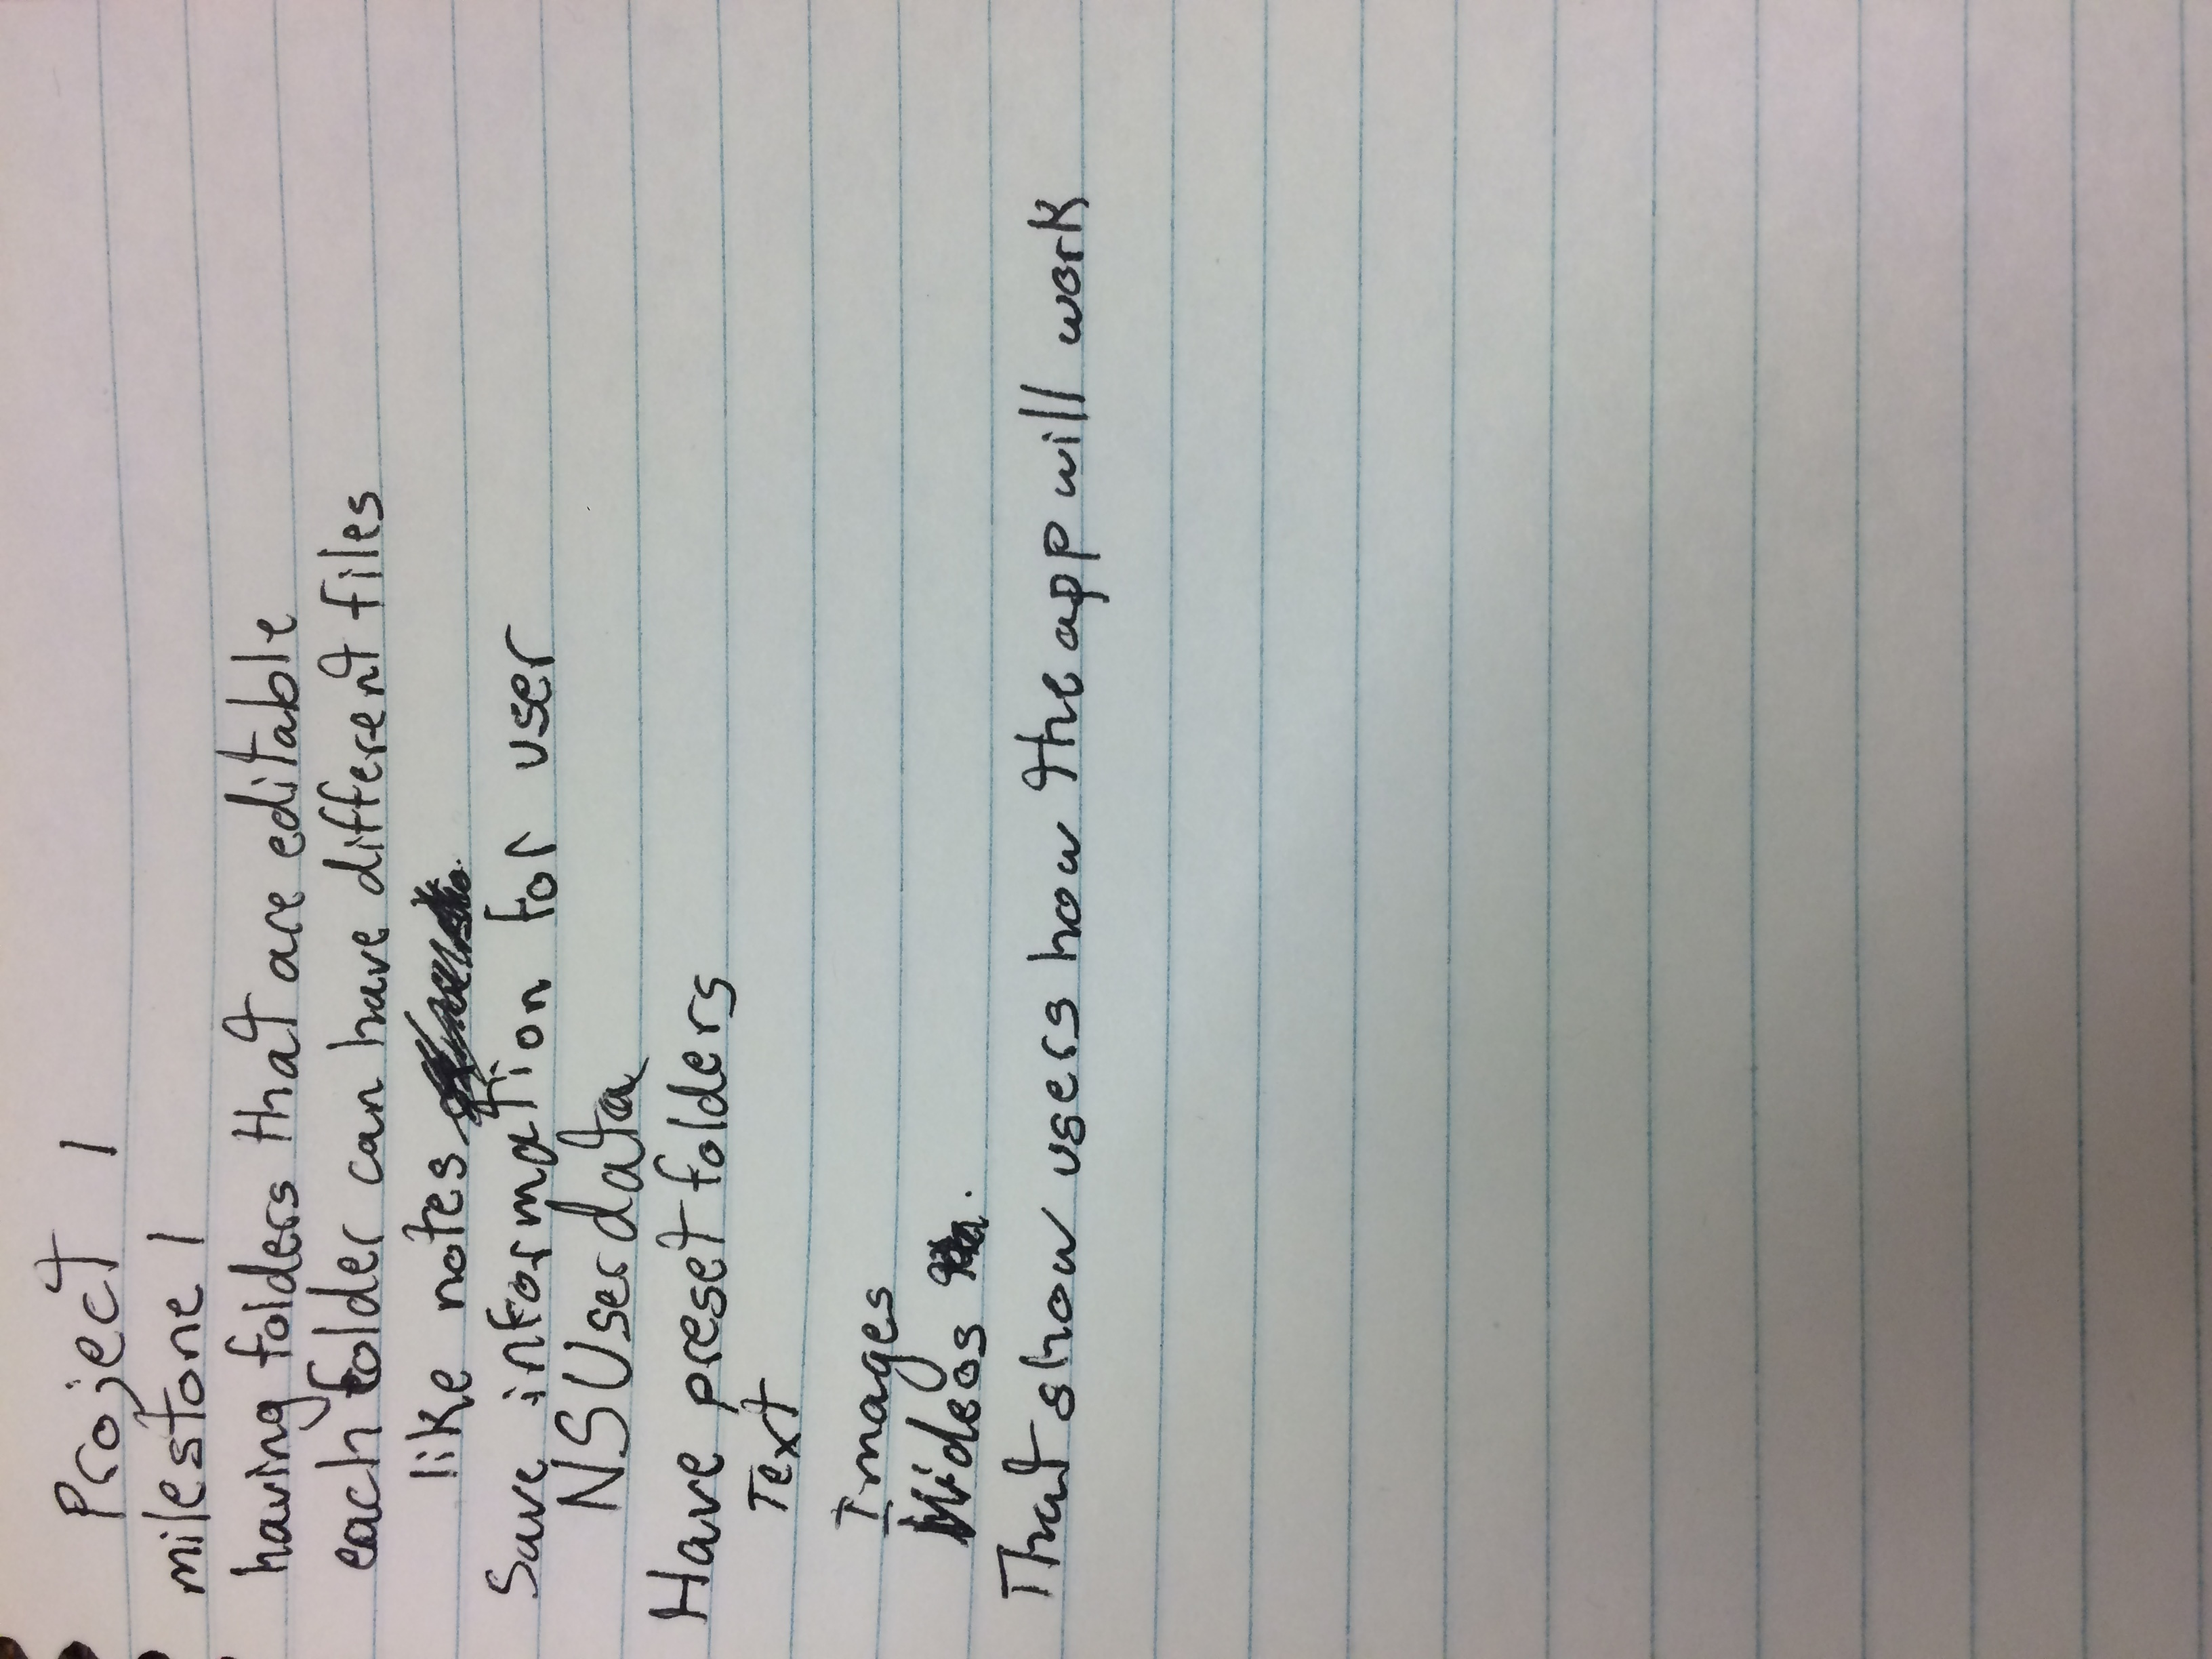 Project 1
milestone 1
having folders that are editable
each folder can have different files
like notes
Save information for user
NSUserdata
Have preset folders
Text
Images
Videos
That show users how the app will work